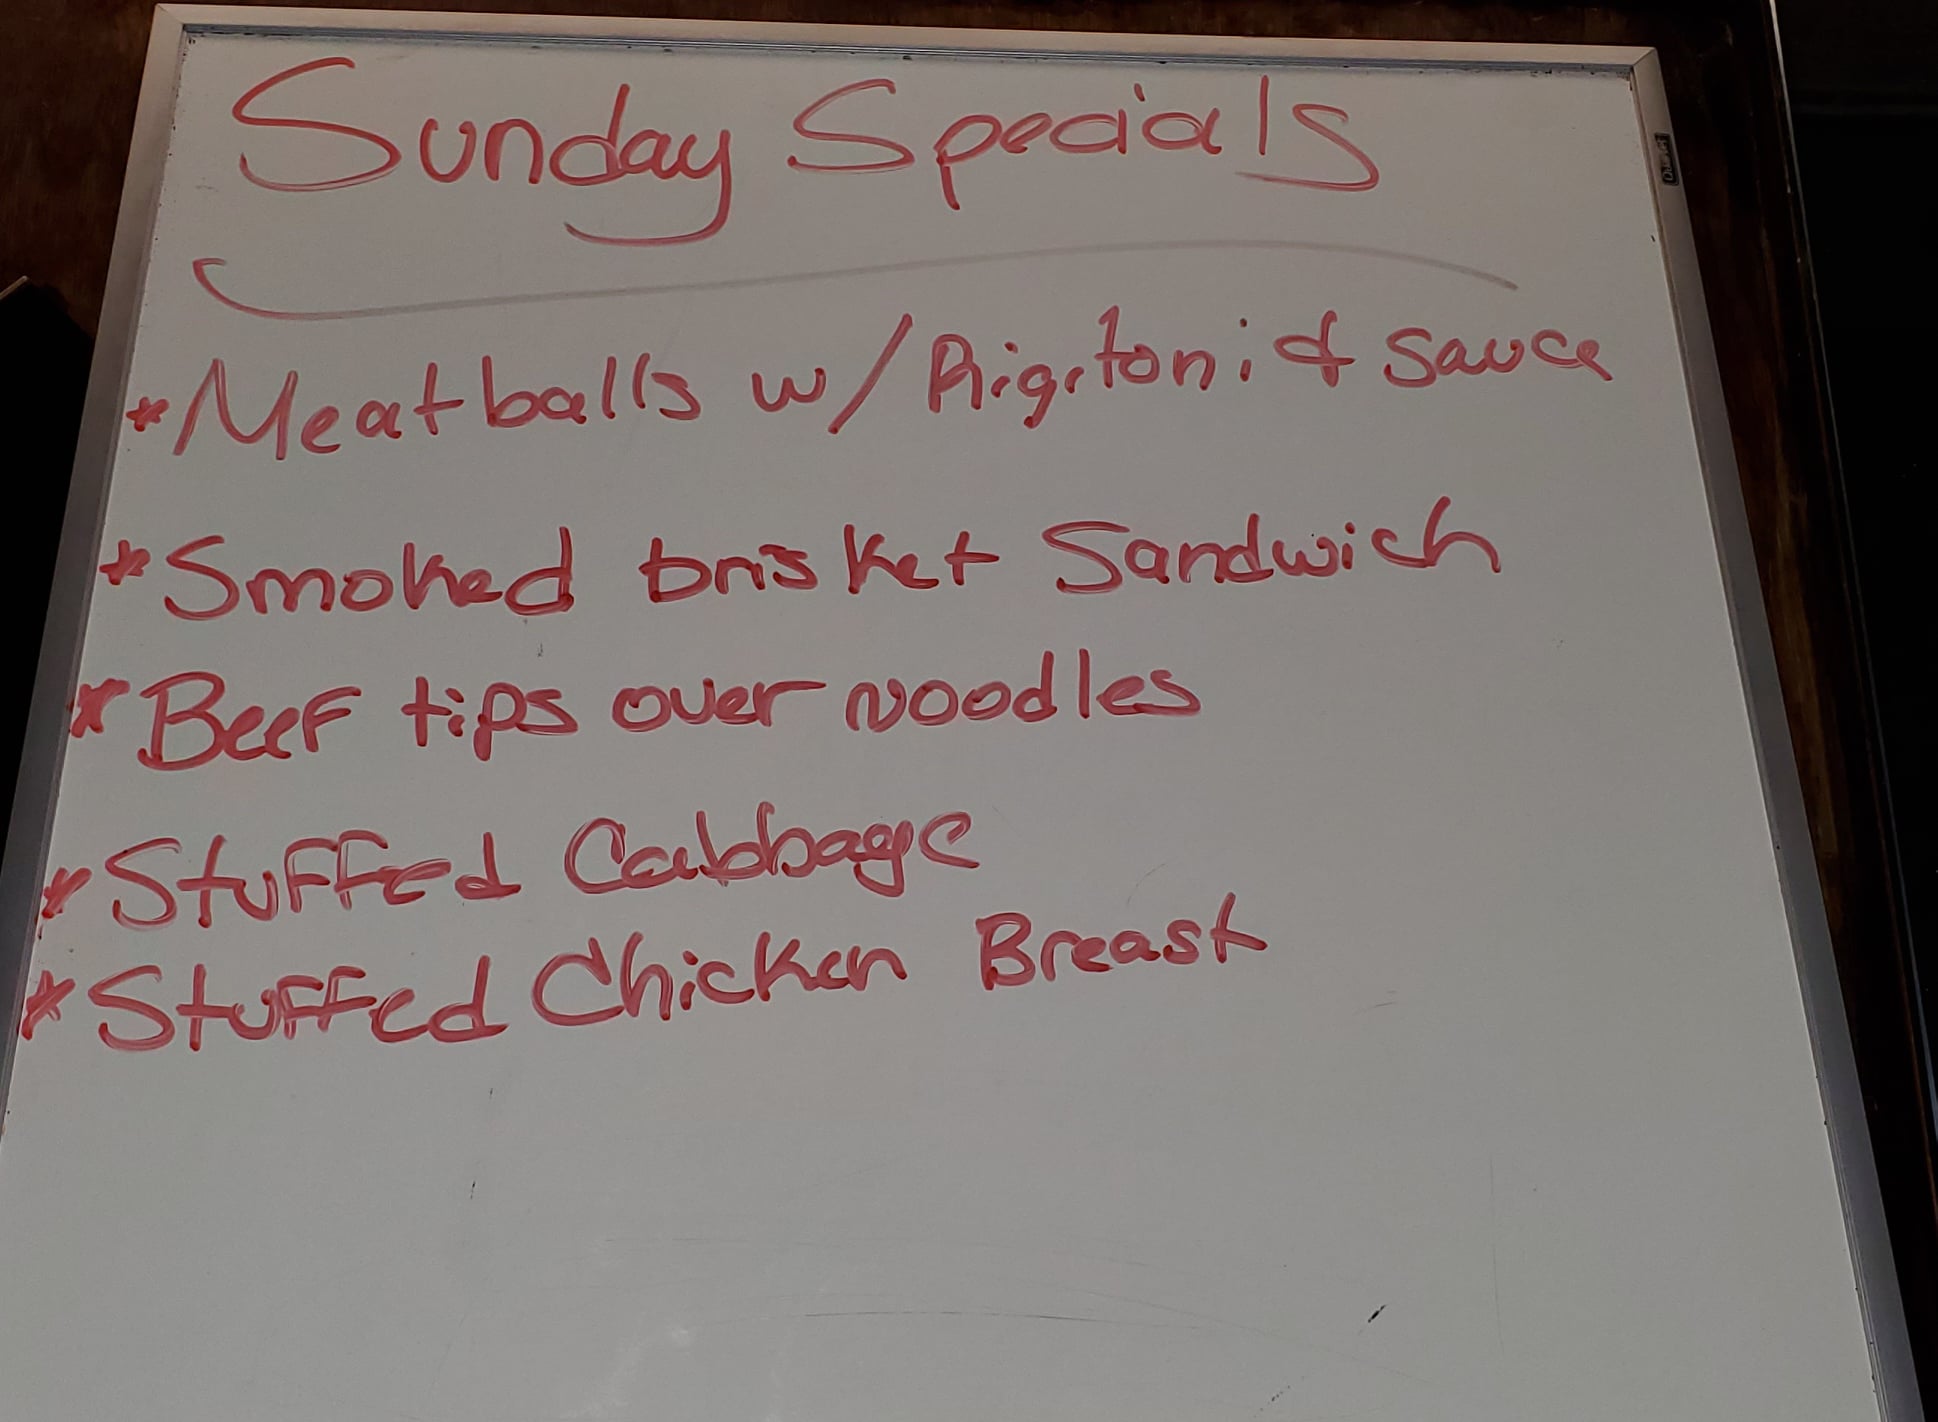 Sunday Specials
*Meatballs w/ Rigitoni & Sauce
*Smoked brisket Sandwich
*Beef tips over noodles
*Stuffed Cabbage
*Stuffed Chicken Breast